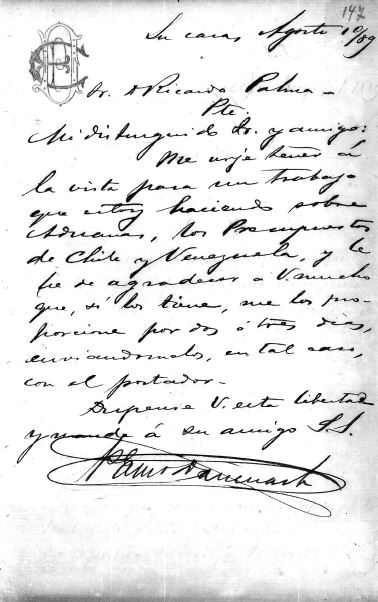 147
Su casa, Agosto 10/89
Sr. D Ricardo Palma-
Pte.
Mi distinguido Sr. y amigo:
Me urje tener á
la vista para un trabajo
que estoy haciendo sobre
Aduanas, los Presupuestos
de Chile y Venezuela, y le
he de agradecer a V. mucho
que, si los tiene, me los pro-
porcione por dos ó tres dias,
enviandomelos, en tal caso,
con el portador-
Dispense V. esta libertad
y mande á su amigo S.S.